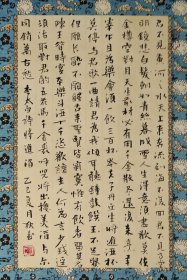 君不見黃河之水天上來奔流到海不復回君不見高堂
明鏡悲白髮朝如青絲暮成雪人生得意須盡歡莫使
金樽空對月天生我材必有用千金散盡還復來烹羊
宰牛且為樂會須一飲三百杯岑夫子丹丘生將進酒杯
莫停與君歌一曲請君為我傾耳聽鐘鼓饌玉不足貴
但願長醉不願醒古來聖賢皆寂寞惟有飲者留其名
陳王昔時宴平樂斗酒十千恣歡謔主人何為言少錢
須沽取對君酌五花馬千金裘呼兒將出換美酒與爾
同銷萬古愁 李太白詩將進酒 乙巳夏月